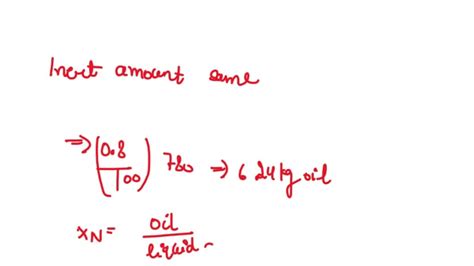 Inert amount same
⇒ (0.8/100) 780 ⇒ 6 24 kg oil
xN = oil/liquid